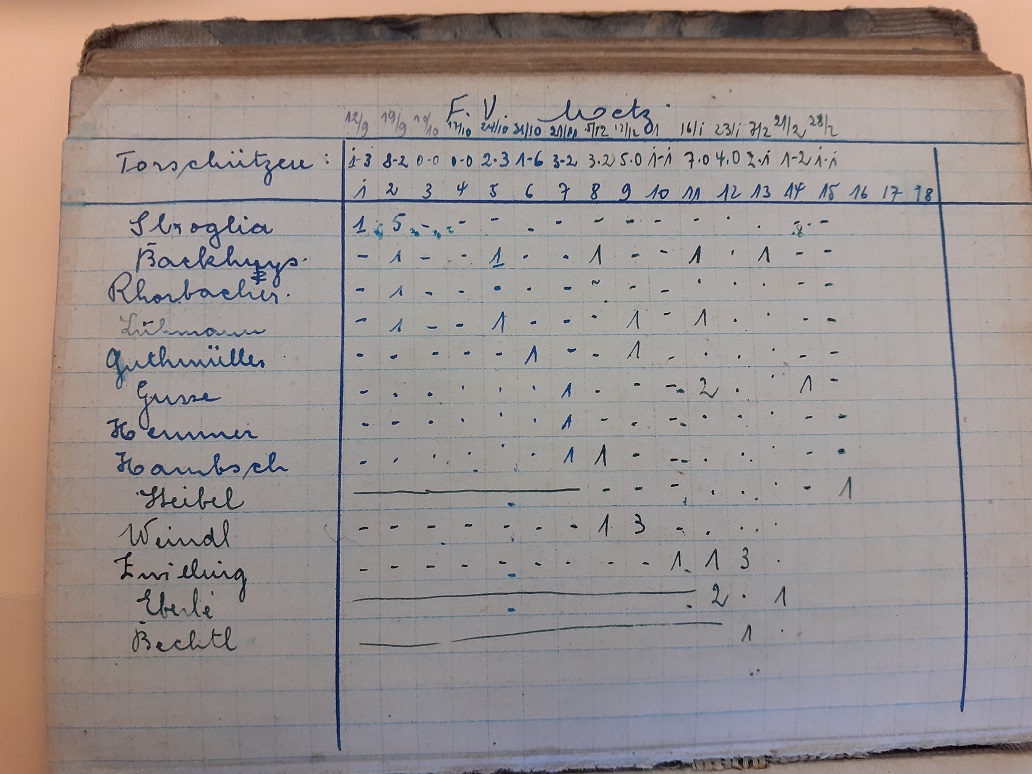 F. V. Metz
12/9 19/9 10/10 17/10 24/10 31/10 21/11 5/12 12/12 9/1 16/i 23/i 7/2 21/2 28/2
Torschützen : i-3 8-2 0-0 0-0 2-3 1-6 3-2 3.2 5.0 i-i 7.0 4.0 2-i 1-2 i-i
i 2 3 4 5 6 7 8 9 10 11 12 13 14 15 16 17 18
Stroglia 1 . 5 - - - . - - - - - . . . -
Backhuys - 1 - - 1 - - 1 - - 1 . 1 - -
Rhorbacher - 1 - - - - - - - - - . . - -
Lühmann - 1 - - 1 - - . 1 - 1 . . - -
Guthmüller - - - - - 1 - - 1 - . . . - -
Gusse - . . . . . 1 . - - 2 . . 1 -
Hemmer - - . . . . 1 . - - . . . . -
Hambsch - . . . . . 1 1 . - . . . . -
Steibel - - - - . . . - 1
Weindl - - - - - - - 1 3 - . . .
Zwilling - - - - - - - - - 1 1 3 .
Eberlé . 2 . 1
Bechtl 1 .